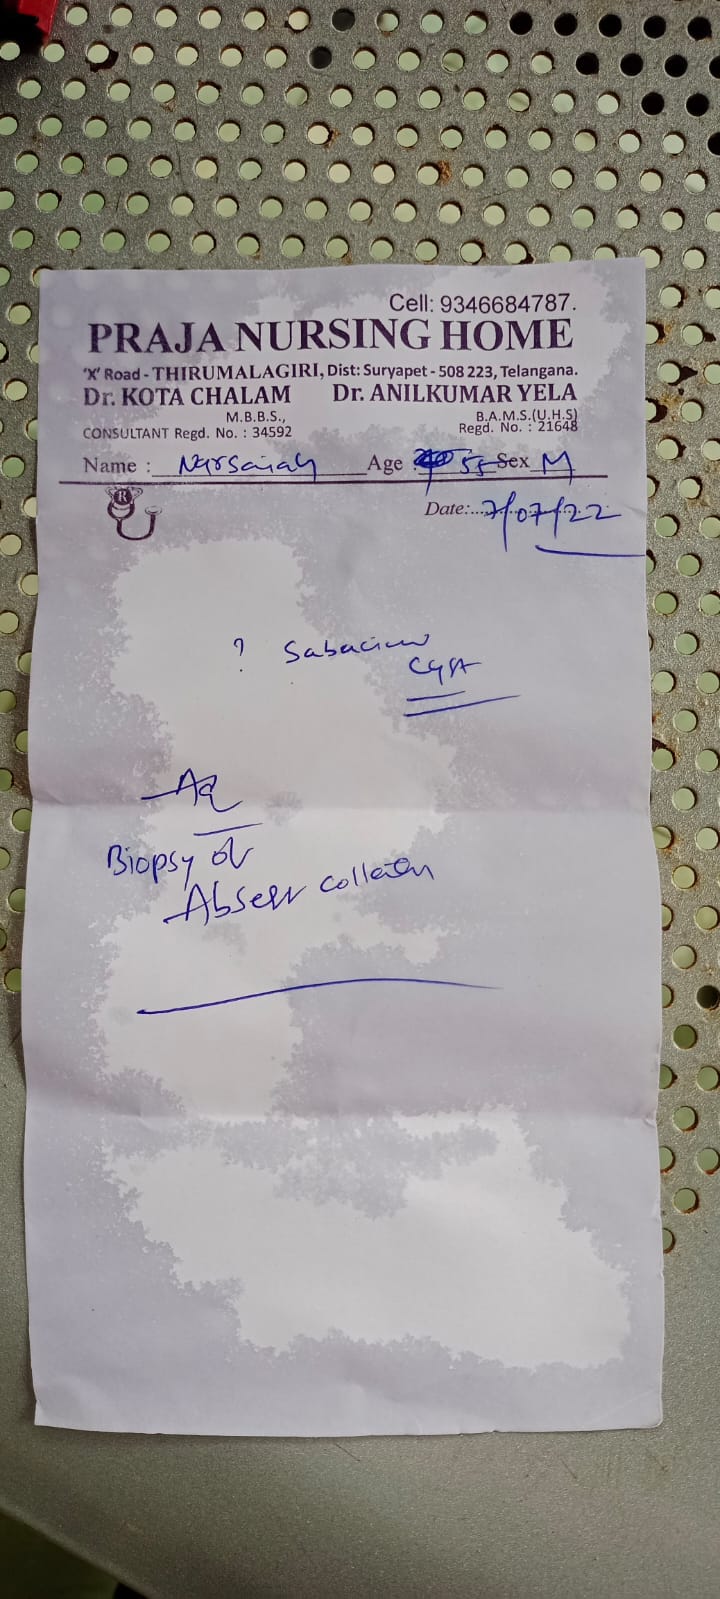 Cell: 9346684787.
PRAJA NURSING HOME
'X' Road - THIRUMALAGIRI, Dist: Suryapet - 508 223, Telangana.
Dr. KOTA CHALAM Dr. ANILKUMAR YELA
M.B.B.S., B.A.M.S.(U.H.S)
CONSULTANT Regd. No. : 34592 Regd. No. : 21648
Name : Narsaiah Age : 55 Sex M
R
Date:...7/07/22
?
Cyst
Biopsy or